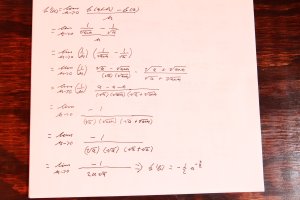 f'(a) = lim h→0 f(a+h) - f(a) / h
= lim h→0 1/√a+h - 1/√a / h
= lim h→0 (1/h) (1/√a+h - 1/√a)
= lim h→0 (1/h) √a - √a+h / (√a)(√a+h) · √a + √a+h / √a + √a+h
= lim h→0 (1/h) a - a - h / (√a)(√a+h)(√a + √a+h)
= lim h→0 -1 / (√a)(√a+h)(√a + √a+h)
= lim h→0 -1 / (√a)(√a)(√a + √a)
= lim h→0 -1 / 2a√a ⇒ f'(a) = -1/2 a^-3/2